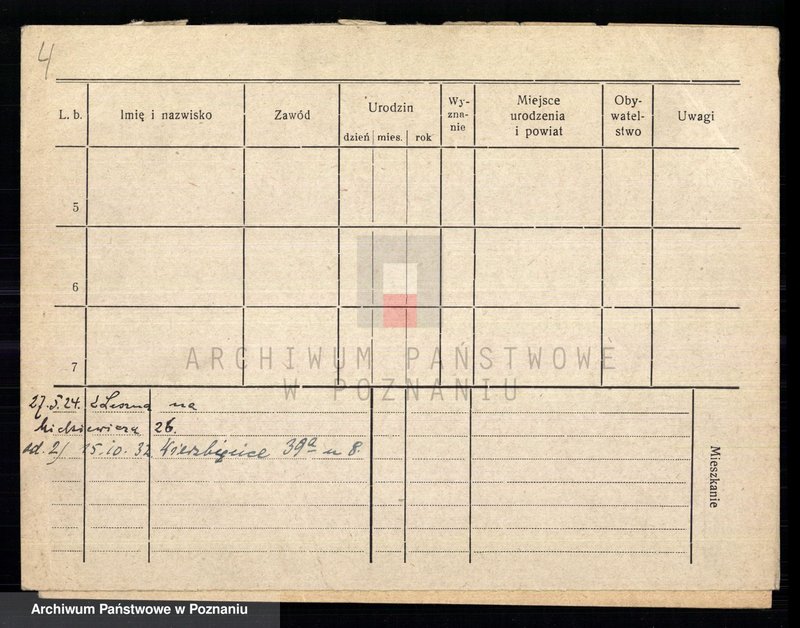 4
L. b. Imię i nazwisko Zawód Urodzin Wy-zna-nie Miejsce urodzenia i powiat Oby-watel-stwo Uwagi
dzień mies. rok
5
6
7
ARCHIWUM PAŃSTWOWE
W POZNANIU
27.5.24. z Leszna na
Mickiewicza 26.
od. 2/ 15.10.32 Wierzbięcice 39a m 8.
Mieszkanie
Archiwum Państwowe w Poznaniu